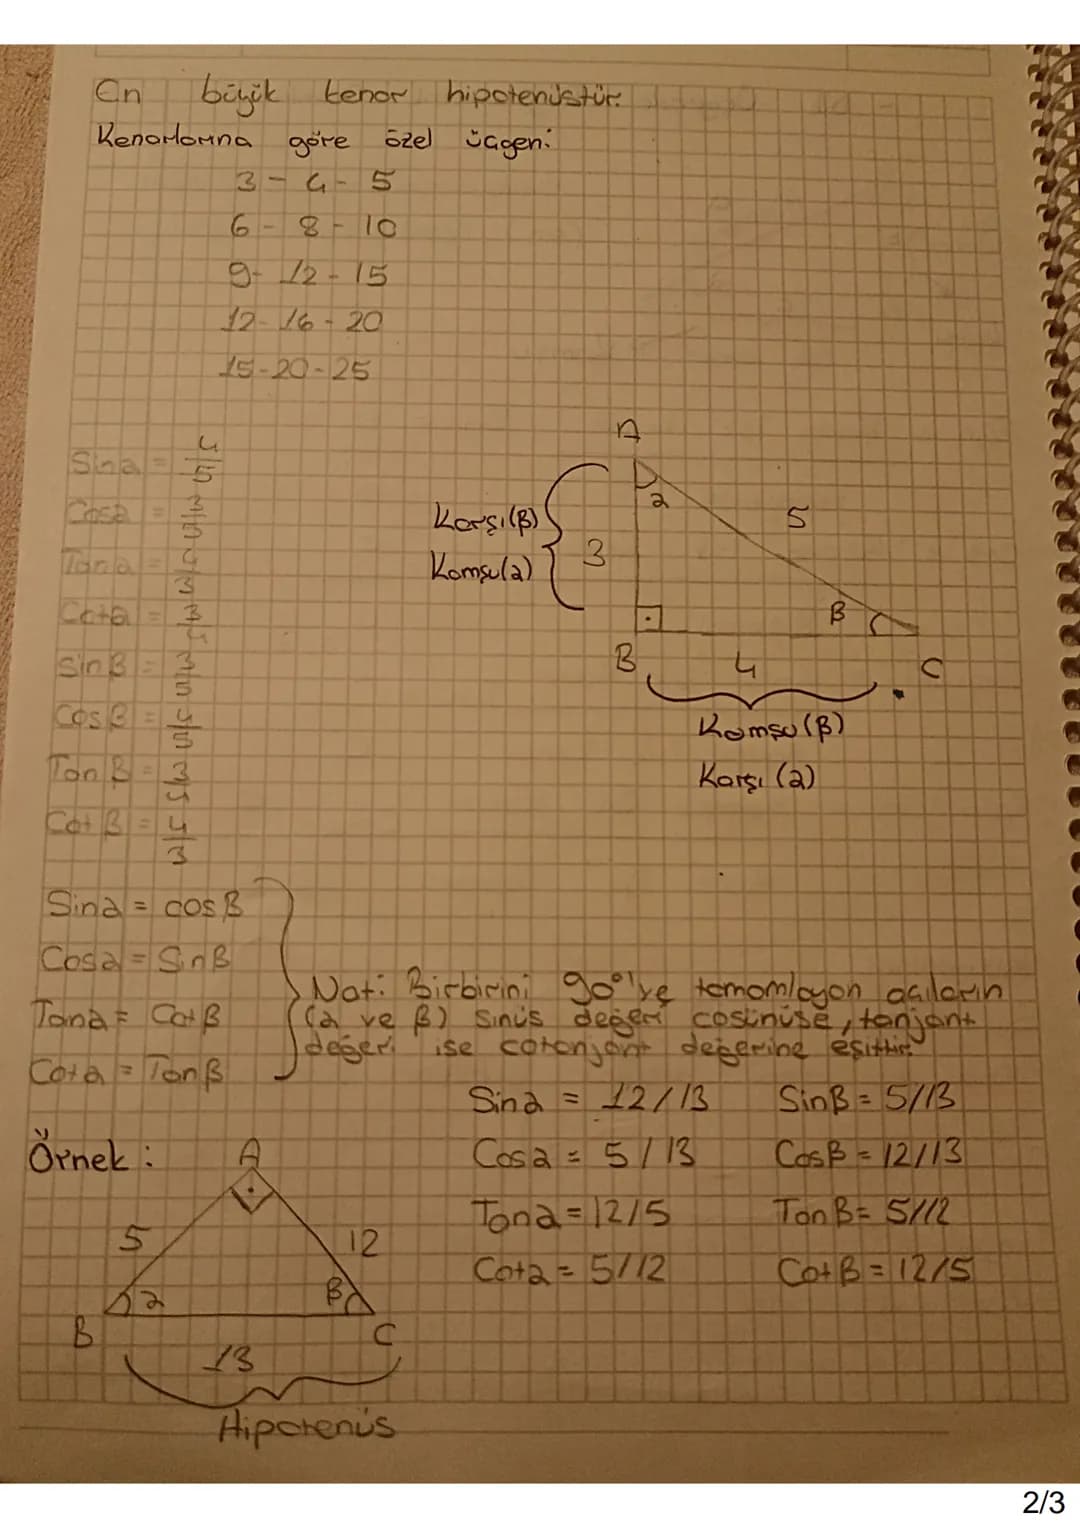 En büyük kenar hipotenüstür.
Kenarlarına göre özel üçgen:
3 - 4 - 5
6 - 8 - 10
9 - 12 - 15
12 - 16 - 20
15 - 20 - 25
Sina = 4/5
Cosa = 3/5
Tana = 4/3
Cota = 3/4
Sinβ = 3/5
Cosβ = 4/5
Tanβ = 3/4
Cotβ = 4/3
A
a
5
Karşı(β)
Komşu(a)
3
β
B
4
C
Komşu(β)
Karşı(a)
Sina = cosβ
Cosa = Sinβ
Tana = Cotβ
Cota = Tanβ
Not: Birbirini 90°'ye tamamlayan açıların
(a ve β) sinüs değeri cosinüse, tanjant
değeri ise cotanjant değerine eşittir.
Sina = 12/13 Sinβ = 5/13
Cosa = 5/13 Cosβ = 12/13
Tana = 12/5 Tanβ = 5/12
Cota = 5/12 Cotβ = 12/5
Örnek:
A
5
12
a
β
B
C
13
Hipotenüs
2/3